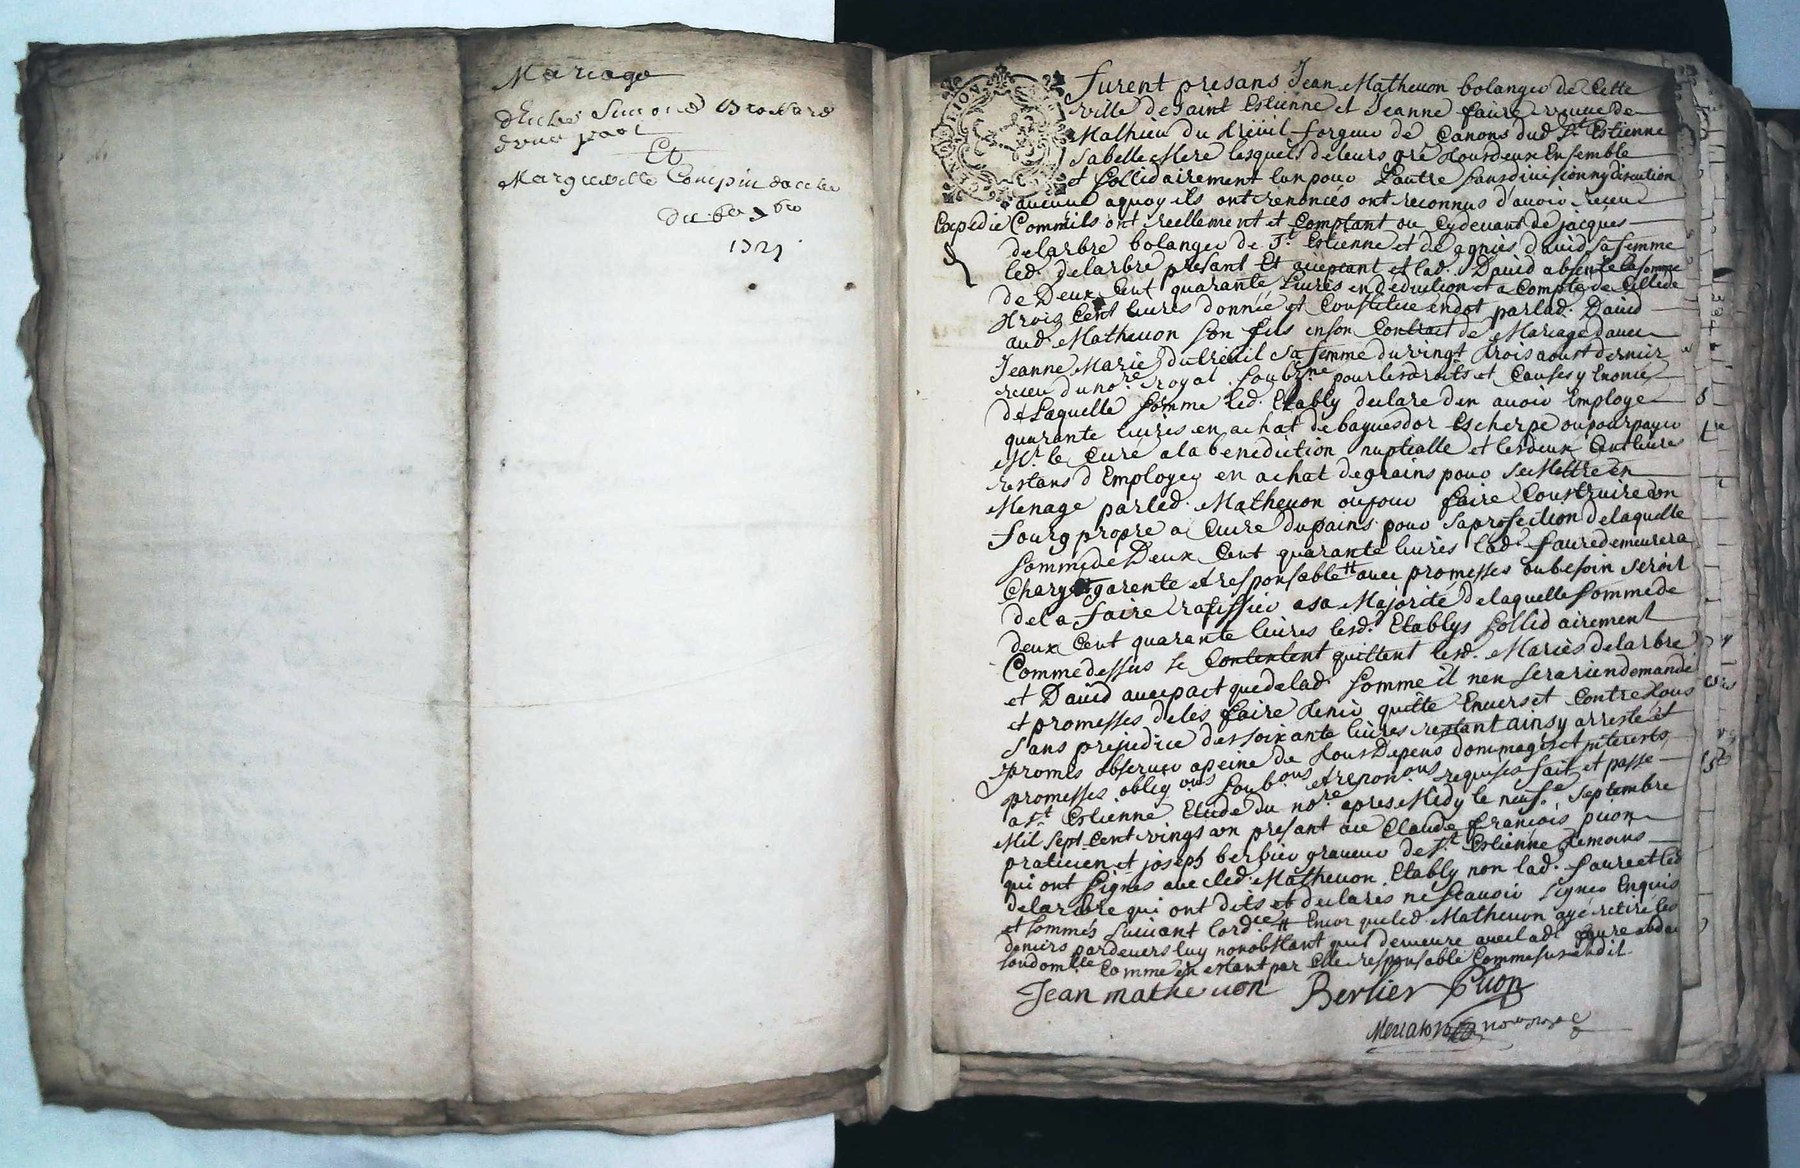 Mariage
d'une part
Et
Margueritte
1721
furent presans Jean Matheuon bolanger de Cette
ville de Saint Estienne et Jeanne faure veuue de
Mathieu du treüil forgeur de Canons dud St Estienne
sa belle Mere lesquels de leurs gré tous deux Ensemble
et sollidairement lun pour Lautre sans diuision ny discution
aucune aquoy ils ont renoncés ont reconnus d'auoir receu
Expedié Comm ils ont reellement et Comptant ou Cydeuant de jacques
delarbre bolanger de St Estienne et de agniès dauid sa femme
led. delarbre présant Et acceptant et lad. Dauid absente la somme
de Deux Cent quarante Liures en deduction et a Compte de Celle de
trois Cent liures donnée et Constituée en dot par lad. Dauid
aud Matheuon son fils en son Contract de Mariage dauec
Jeanne Marie du treuil sa femme du vingt trois aoust dernier
receu du nore royal soubne pour les droits et Causes y Enoncés
de Laquelle somme led. Etably declare d'en auoir Employé
quarante liures en achat de bagues dor Escherpe ou pour payer
Mr. le Curé a la benediction nuptialle et les deux Cent liures
restans d'Employer en achat de grains pour se Mettre en
Menage par led. Matheuon ou pour faire Construire un
fourg propre a Cuire du pains pour sa profection de laquelle
somme de Deux Cent quarante liures lad. faure demeurera
Chargé garente et responsable tt auec promesses ou besoin seroit
de la faire rattiffier a sa Majorité de laquelle somme de
deux Cent quarante liures lesd. Etablys sollidairement
Comme dessus se Contentent quittent lesd. Mariés delarbre
et Dauid auec pact que de lad. somme il nen sera rien demandé
et promesses de lès faire tenir quitte Enuers et Contre tous
sans prejudice des soixante liures restant ainsy arresté et
promis obseruer a peine de tous Depens dommages et interests
promesses obligons soubons et renonons requises fait et passé
a St Estienne Etude du nore apres Midy le neufe Septembre
Mil sept Cent vings un présant me Claude françois pion
praticien et joseph berlier graueur de St Estienne temoins
qui ont signés auec led. Matheuon Etably non lad. faure et led
delarbre qui ont dits et declarés ne scauoir signer Enquis
et sommés suiuant lordce tt Encor que led Matheuon aye retiré les
deniers pardeuers luy nonobstant quoy demeure auec lad. faure
Comme en estant par Elle responsable Comme sus est dit
Jean matheuon Berlier Pion